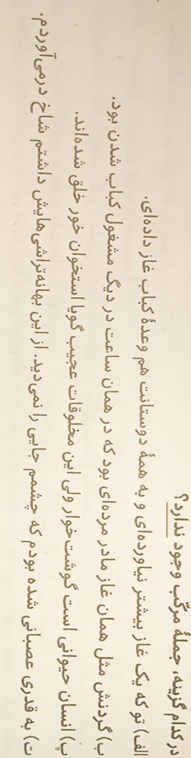 در کدام گزینه، جملهٔ مرکّب وجود ندارد؟
الف) تو که یک غاز بیشتر نیاورده‌ای و به همهٔ دوستانت هم وعدهٔ کباب غاز داده‌ای.
ب) گردنش مثل همان غاز مادر مرده‌ای بود که در همان ساعت در دیگ مشغول کباب شدن بود.
پ) انسان حیوانی است گوشت‌خوار ولی این مخلوقات عجیب گویا استخوان خور خلق شده‌اند.
ت) به قدری عصبانی شده بودم که چشمم جایی را نمی‌دید. از این بهانه‌تراشی‌هایش داشتم شاخ درمی‌آوردم.